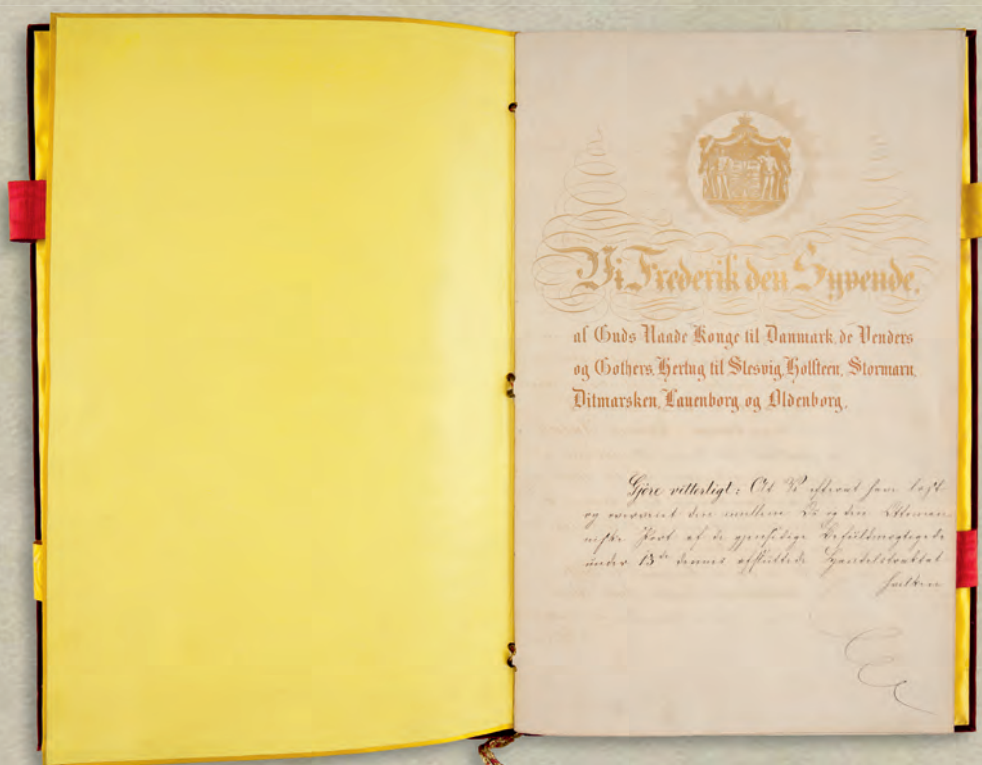 Vi Frederik den Syvende,
af Guds Naade Konge til Danmark, de Venders
og Gothers, Hertug til Slesvig, Holsteen, Stormarn,
Ditmarsken, Lauenborg og Oldenborg,
Gjöre vitterligt: At Vi efterat have læst
og overveiet den mellem Os og den Ottoman
niske Port af de gjensidige Befuldmægtigede
under 13de dennes afsluttede Handelstraktat
hvilken